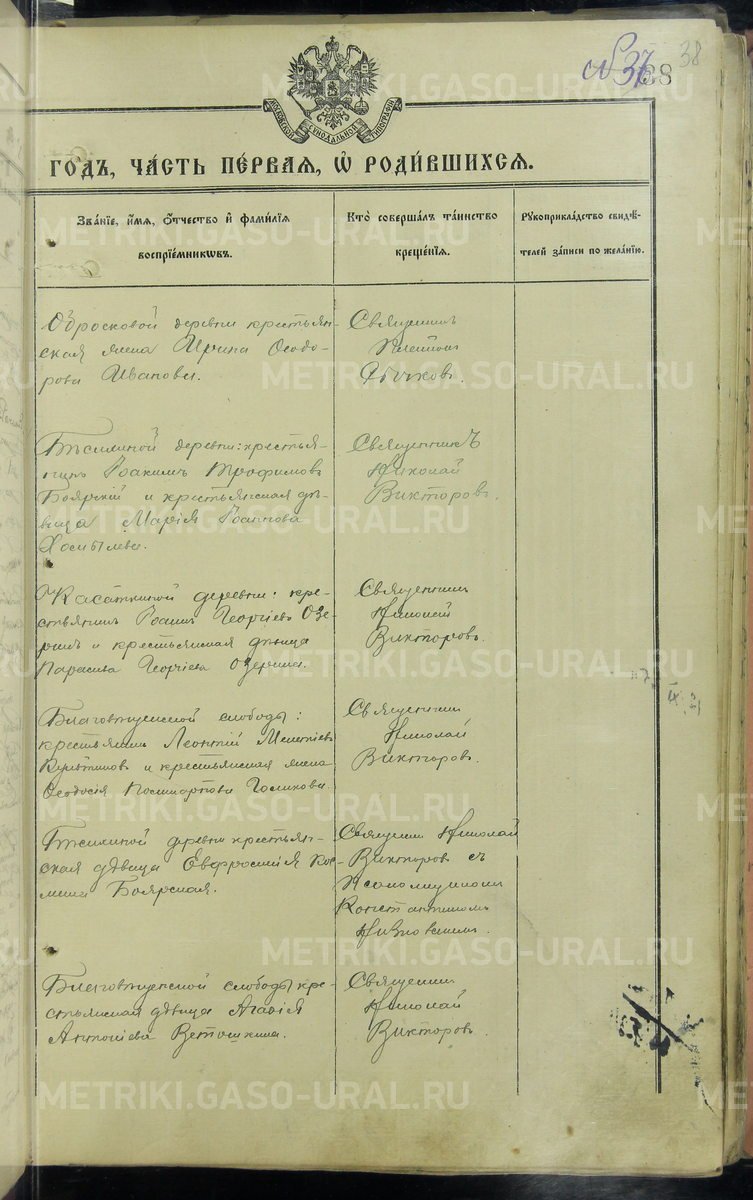 № 37
38
38
МОСКОВСКОЙ СѴНОДАЛЬНОЙ ТИПОГРАФІИ
ГО́ДЪ, ЧА́СТЬ ПЕ́РВАЯ, Ѽ РОДИ́ВШИХСЯ.
Зва́нїе, и҆́мя, ѻ҆́тчество и҆ фами́лїя
воспрїе́мникѡвъ.
Кто̀ соверша́лъ та́инство
креще́нїя.
Рукоприкла́дство свидѣ́-
телей за́писи по жела́нїю.
Обросковой деревни крестьян-
ская жена Ирина Ѳеодо-
рова Иванова.
Священникъ
Дьячковъ.
деревни: крестья-
нинъ Іоакимъ Трофимовъ
Боярскій и крестьянская дѣ-
вица Марія Іоаннова
Священникъ
Николай
Викторовъ.
Касаткиной деревни: кре-
стьянинъ Іоаннъ Георгіевъ Озе-
ринъ и крестьянская дѣвица
Параскева Георгіева Озерина.
Священникъ
Николай
Викторовъ.
Благовѣщенской слободы:
крестьянинъ Леонтій Мелетіевъ
и крестьянская жена
Ѳеодосія Поликарпова Голикова.
Священникъ
Николай
Викторовъ.
деревни крестьян-
ская дѣвица Евфросинія Кос-
мина Боярская.
Священникъ Николай
Викторовъ съ
Псаломщикомъ
Константиномъ
Благовѣщенской слободы кре-
стьянская дѣвица Агафія
Антоніева Ветошкина.
Священникъ
Николай
Викторовъ.
METRIKI.GASO-URAL.RU